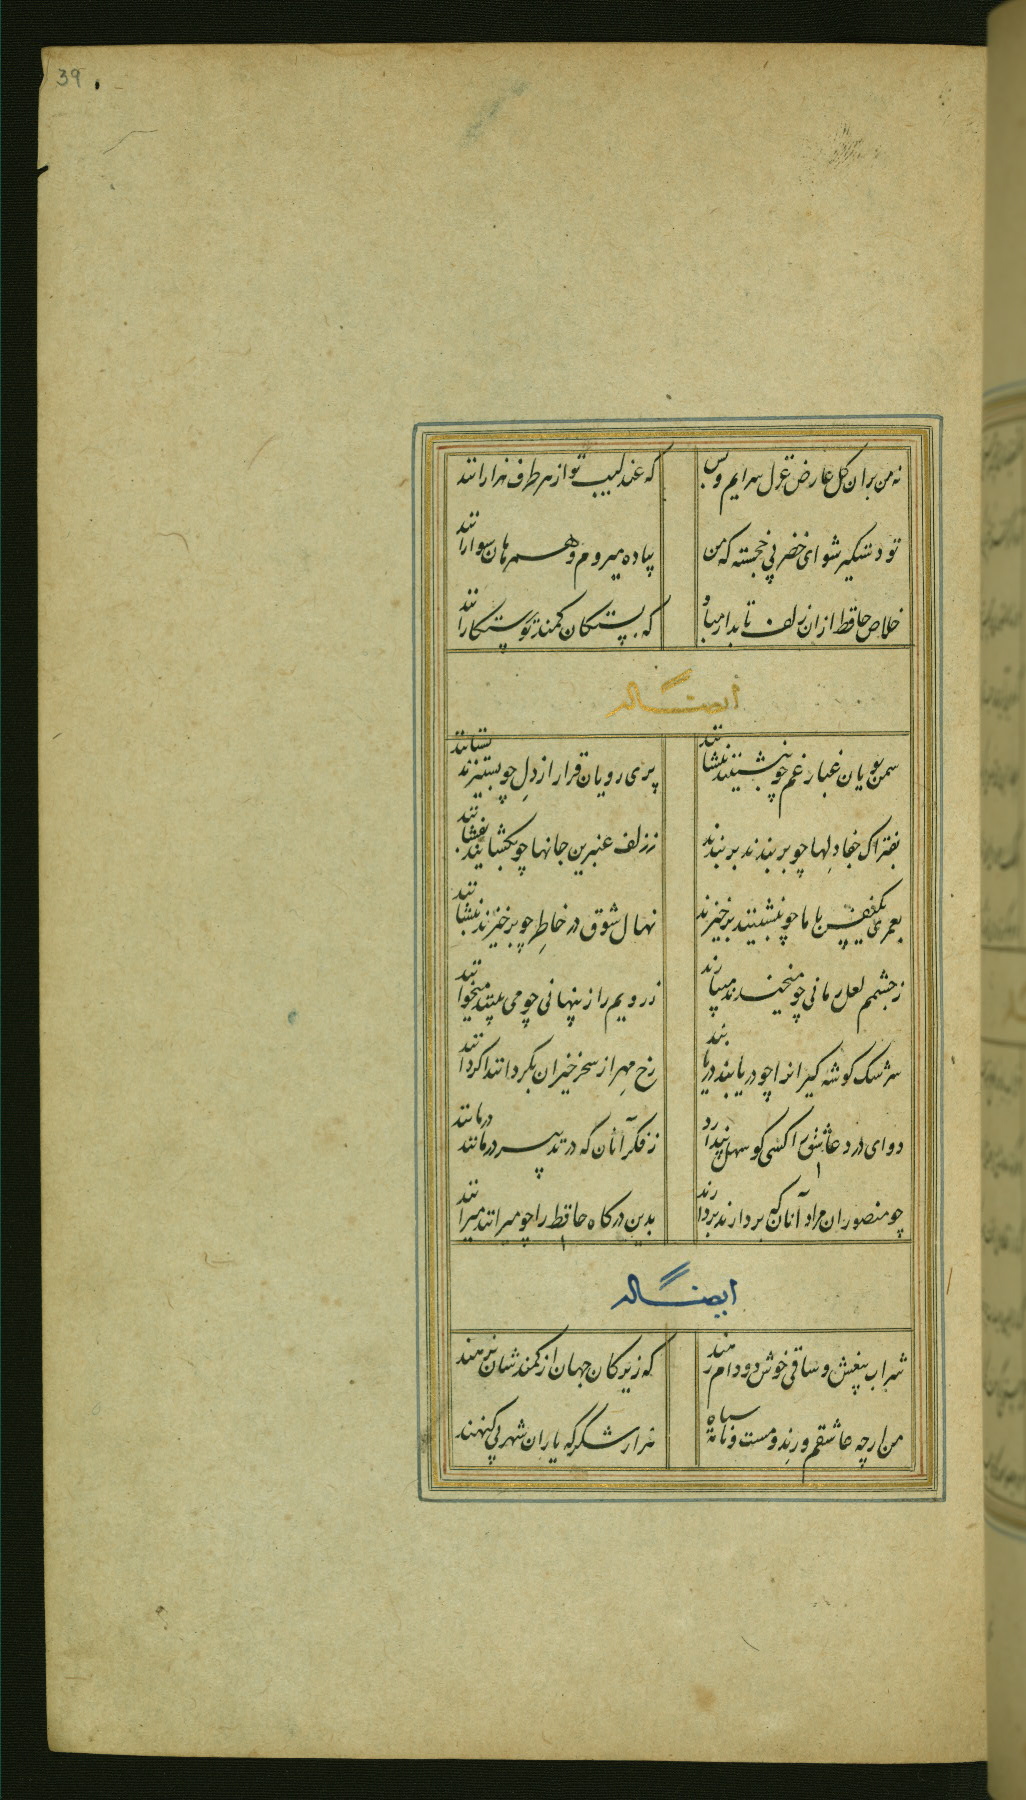 39
نه من بران گل عارض غزل سرایم و بس
که عندلیب تو از هر طرف هزارانند
تو دستگیر شو ای خضر پی خجسته که من
پیاده میروم و همرهان سوارانند
خلاص حافظ ازان زلف تابدار مباد
که بستگان کمند تو رستگارانند
ایضاً له
سمن بویان غبار غم چو بنشینند بنشانند
پری رویان قرار از دل چو بستیزند بستانند
بفتراک جفا دلها چو بربندند بربندند
ز زلف عنبرین جانها چو بگشایند بفشانند
بعمری یکنفس با ما چو بنشینند برخیزند
نهال شوق در خاطر چو برخیزند بنشانند
ز چشمم لعل رمانی چو میخندند میبارند
ز رویم راز پنهانی چو می بینند میخوانند
سرشک گوشه گیرانرا چو دریابند دریابند
رخ مهر از سحر خیران نگردانند اگر دانند
دوای درد عاشق را کسی کو سهل پندارد
ز فکر آنان که در تدبیر درمانند درمانند
چو منصوران مراد آنان که بردارند بردارند
بدین درگاه حافظ را چو میرانند میرانند
ایضاً له
شراب بیغش و ساقی خوش دو دام رهند
که زیرکان جهان از کمندشان نرهند
من ارچه عاشقم و رند و مست و نامه سیاه
هزار شکر که یاران شهر بی گنهند